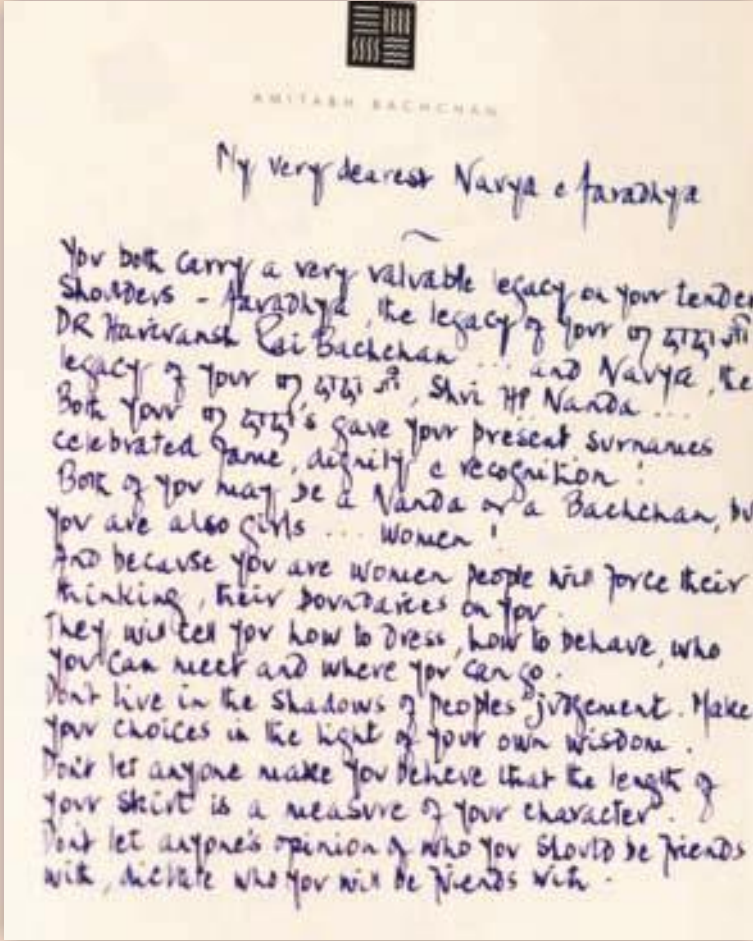 AMITABH BACHCHAN
My very dearest Navya & Aaradhya
You both carry a very valuable legacy on your tender
Shoulders - Aaradhya, the legacy of your पर दादा जी
DR Harivansh Rai Bachchan ... and Navya, the
legacy of your पर दादा जी, Shri HP Nanda ...
Both your पर दादा's gave your present surnames
celebrated fame, dignity & recognition !
Both of you may be a Nanda or a Bachchan, bu
you are also girls ... women !
And because you are women people will force their
thinking, their boundaries on you.
They will tell you how to dress, how to behave, who
you can meet and where you can go.
Don't live in the shadows of peoples judgement. Make
your choices in the light of your own wisdom.
Don't let anyone make you believe that the length of
your skirt is a measure of your character.
Don't let anyone's opinion of who you should be friends
with, dictate who you will be friends with.